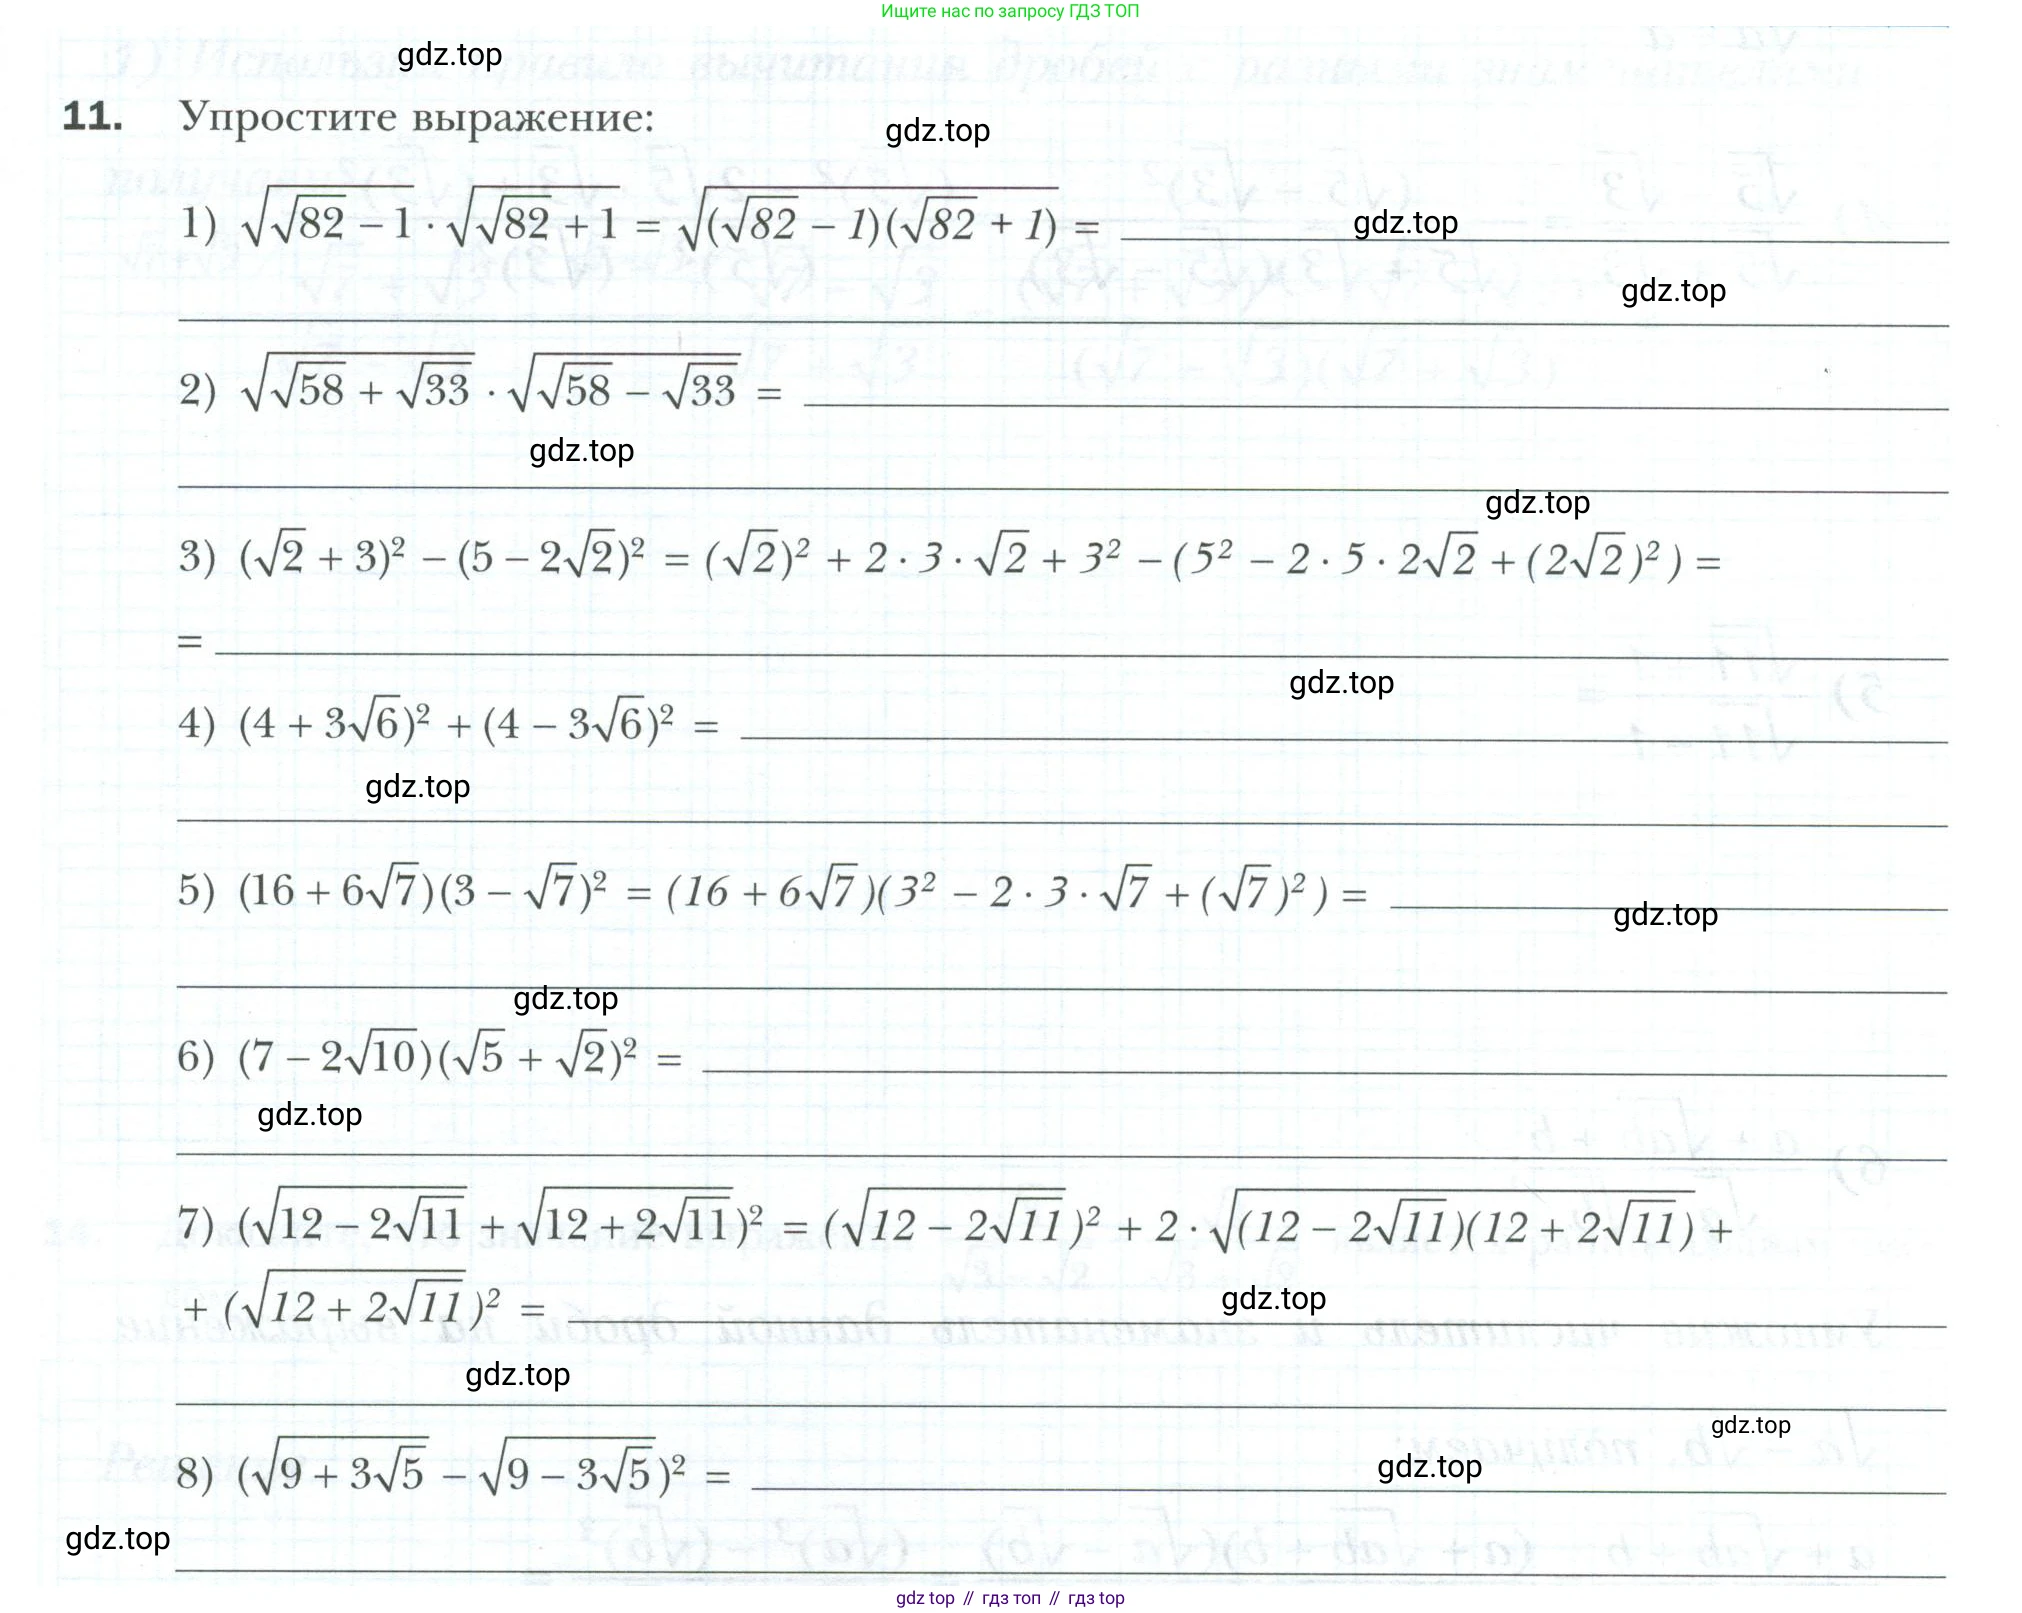 Ищите нас по запросу ГДЗ ТОП
gdz.top
11. Упростите выражение:
gdz.top
1) √(√82 − 1) · √(√82 + 1) = √((√82 − 1)(√82 + 1)) =
gdz.top
gdz.top
2) √(√58 + √33) · √(√58 − √33) =
gdz.top
gdz.top
3) (√2 + 3)² − (5 − 2√2)² = (√2)² + 2 · 3 · √2 + 3² − (5² − 2 · 5 · 2√2 + (2√2)²) =
=
gdz.top
4) (4 + 3√6)² + (4 − 3√6)² =
gdz.top
5) (16 + 6√7)(3 − √7)² = (16 + 6√7)(3² − 2 · 3 · √7 + (√7)²) =
gdz.top
gdz.top
6) (7 − 2√10)(√5 + √2)² =
gdz.top
7) (√(12 − 2√11) + √(12 + 2√11))² = (√(12 − 2√11))² + 2 · √((12 − 2√11)(12 + 2√11)) +
+ (√(12 + 2√11))² =
gdz.top
gdz.top
gdz.top
8) (√(9 + 3√5) − √(9 − 3√5))² =
gdz.top
gdz.top
gdz top // гдз топ // гдз top